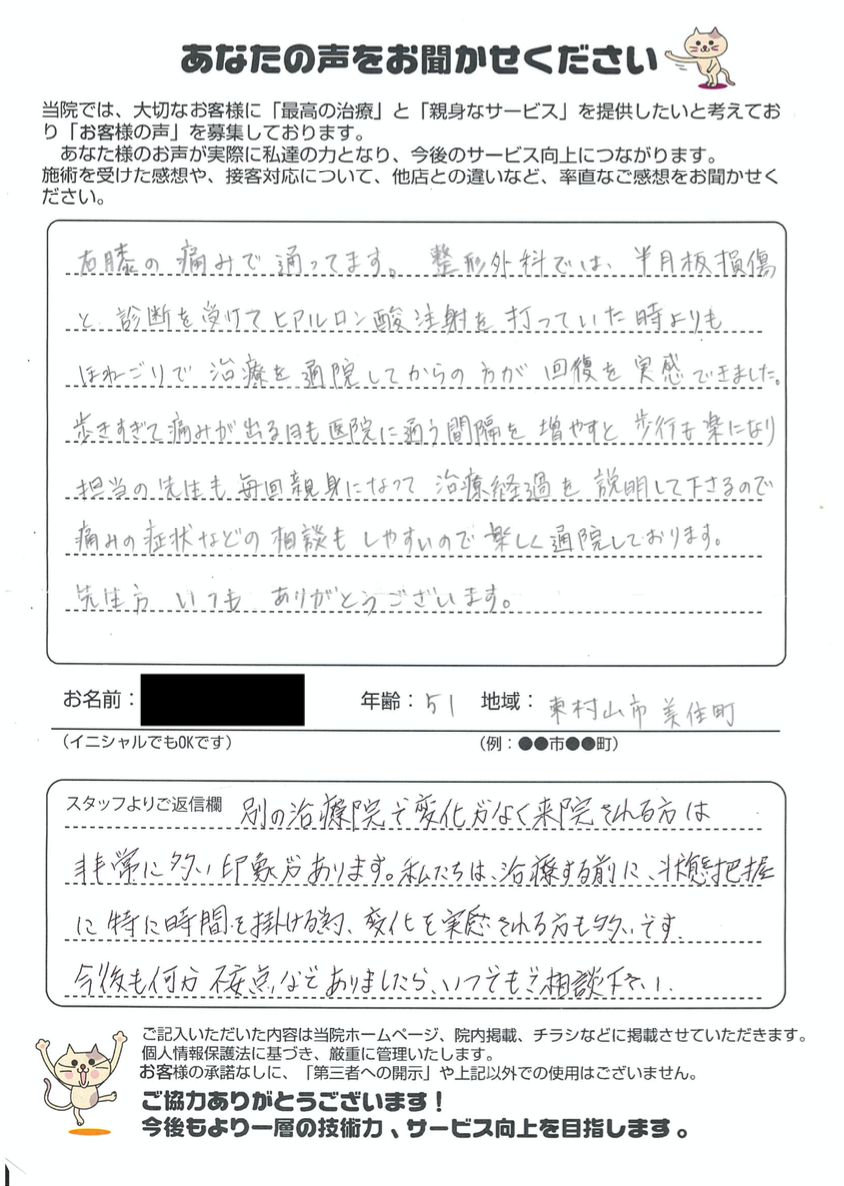 あなたの声をお聞かせください
当院では、大切なお客様に「最高の治療」と「親身なサービス」を提供したいと考えてお
り「お客様の声」を募集しております。
あなた様のお声が実際に私達の力となり、今後のサービス向上につながります。
施術を受けた感想や、接客対応について、他店との違いなど、率直なご感想をお聞かせく
ださい。
右膝の痛みで通ってます。整形外科では、半月板損傷
と診断を受けてヒアルロン酸注射を打っていた時よりも
ほねごりで治療を通院してからの方が回復を実感できました。
歩きすぎて痛みが出る日も医院に通う間隔を増やすと歩行も楽になり
担当の先生も毎回親身になって治療経過を説明して下さるので
痛みの症状などの相談もしやすいので楽しく通院しております。
先生方いつもありがとうございます。
お名前：
年齢：51 地域：東村山市美住町
（イニシャルでもOKです）
（例：●●市●●町）
スタッフよりご返信欄 別の治療院で変化がなく来院される方は
非常に多い印象があります。私たちは、治療する前に、状態把握
に特に時間を掛ける為、変化を実感される方も多いです。
今後も何か不安点などありましたら、いつでもご相談下さい。
ご記入いただいた内容は当院ホームページ、院内掲載、チラシなどに掲載させていただきます。
個人情報保護法に基づき、厳重に管理いたします。
お客様の承諾なしに、「第三者への開示」や上記以外での使用はございません。
ご協力ありがとうございます！
今後もより一層の技術力、サービス向上を目指します。